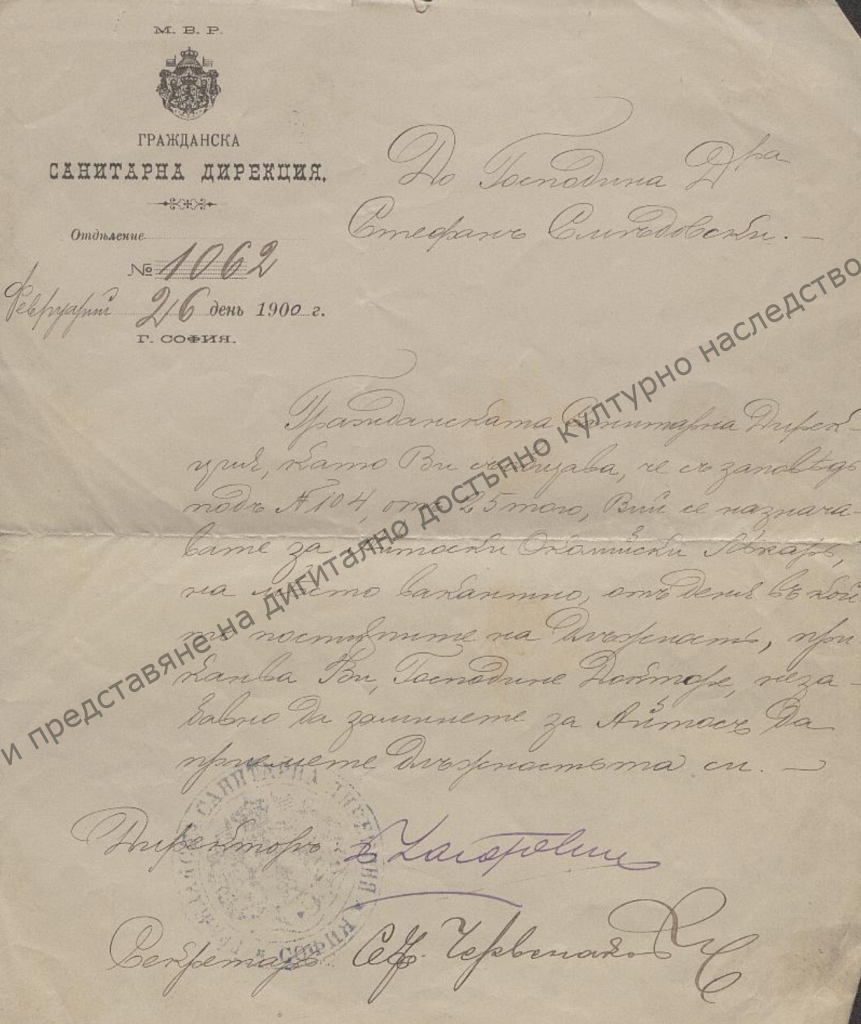 М. В. Р.
ГРАЖДАНСКА
САНИТАРНА ДИРЕКЦИЯ.
Отдѣление
№ 1062
Февруарий 26 день 1900 г.
Г. СОФИЯ.
До Господина Д-ра
Стефанъ Слиѣдовски. —
Гражданската Санитарна Дирек-
ция, като Ви съобщава, че съ заповѣдь
подъ № 104, отъ 25 того, Вий се назнача-
вате за Айтоски Околийски Лѣкаръ,
на место вакантно, отъ деня въ кой
то постѫпите на длъжность, при
канва Ви, Господине Докторе, неза-
бавно да заминете за Айтосъ да
приемете длъжностьта си. —
Директоръ:
Секретаръ:
САНИТАРНА ДИРЕКЦИЯ
СОФИЯ
и представяне на дигитално достъпно културно наследство